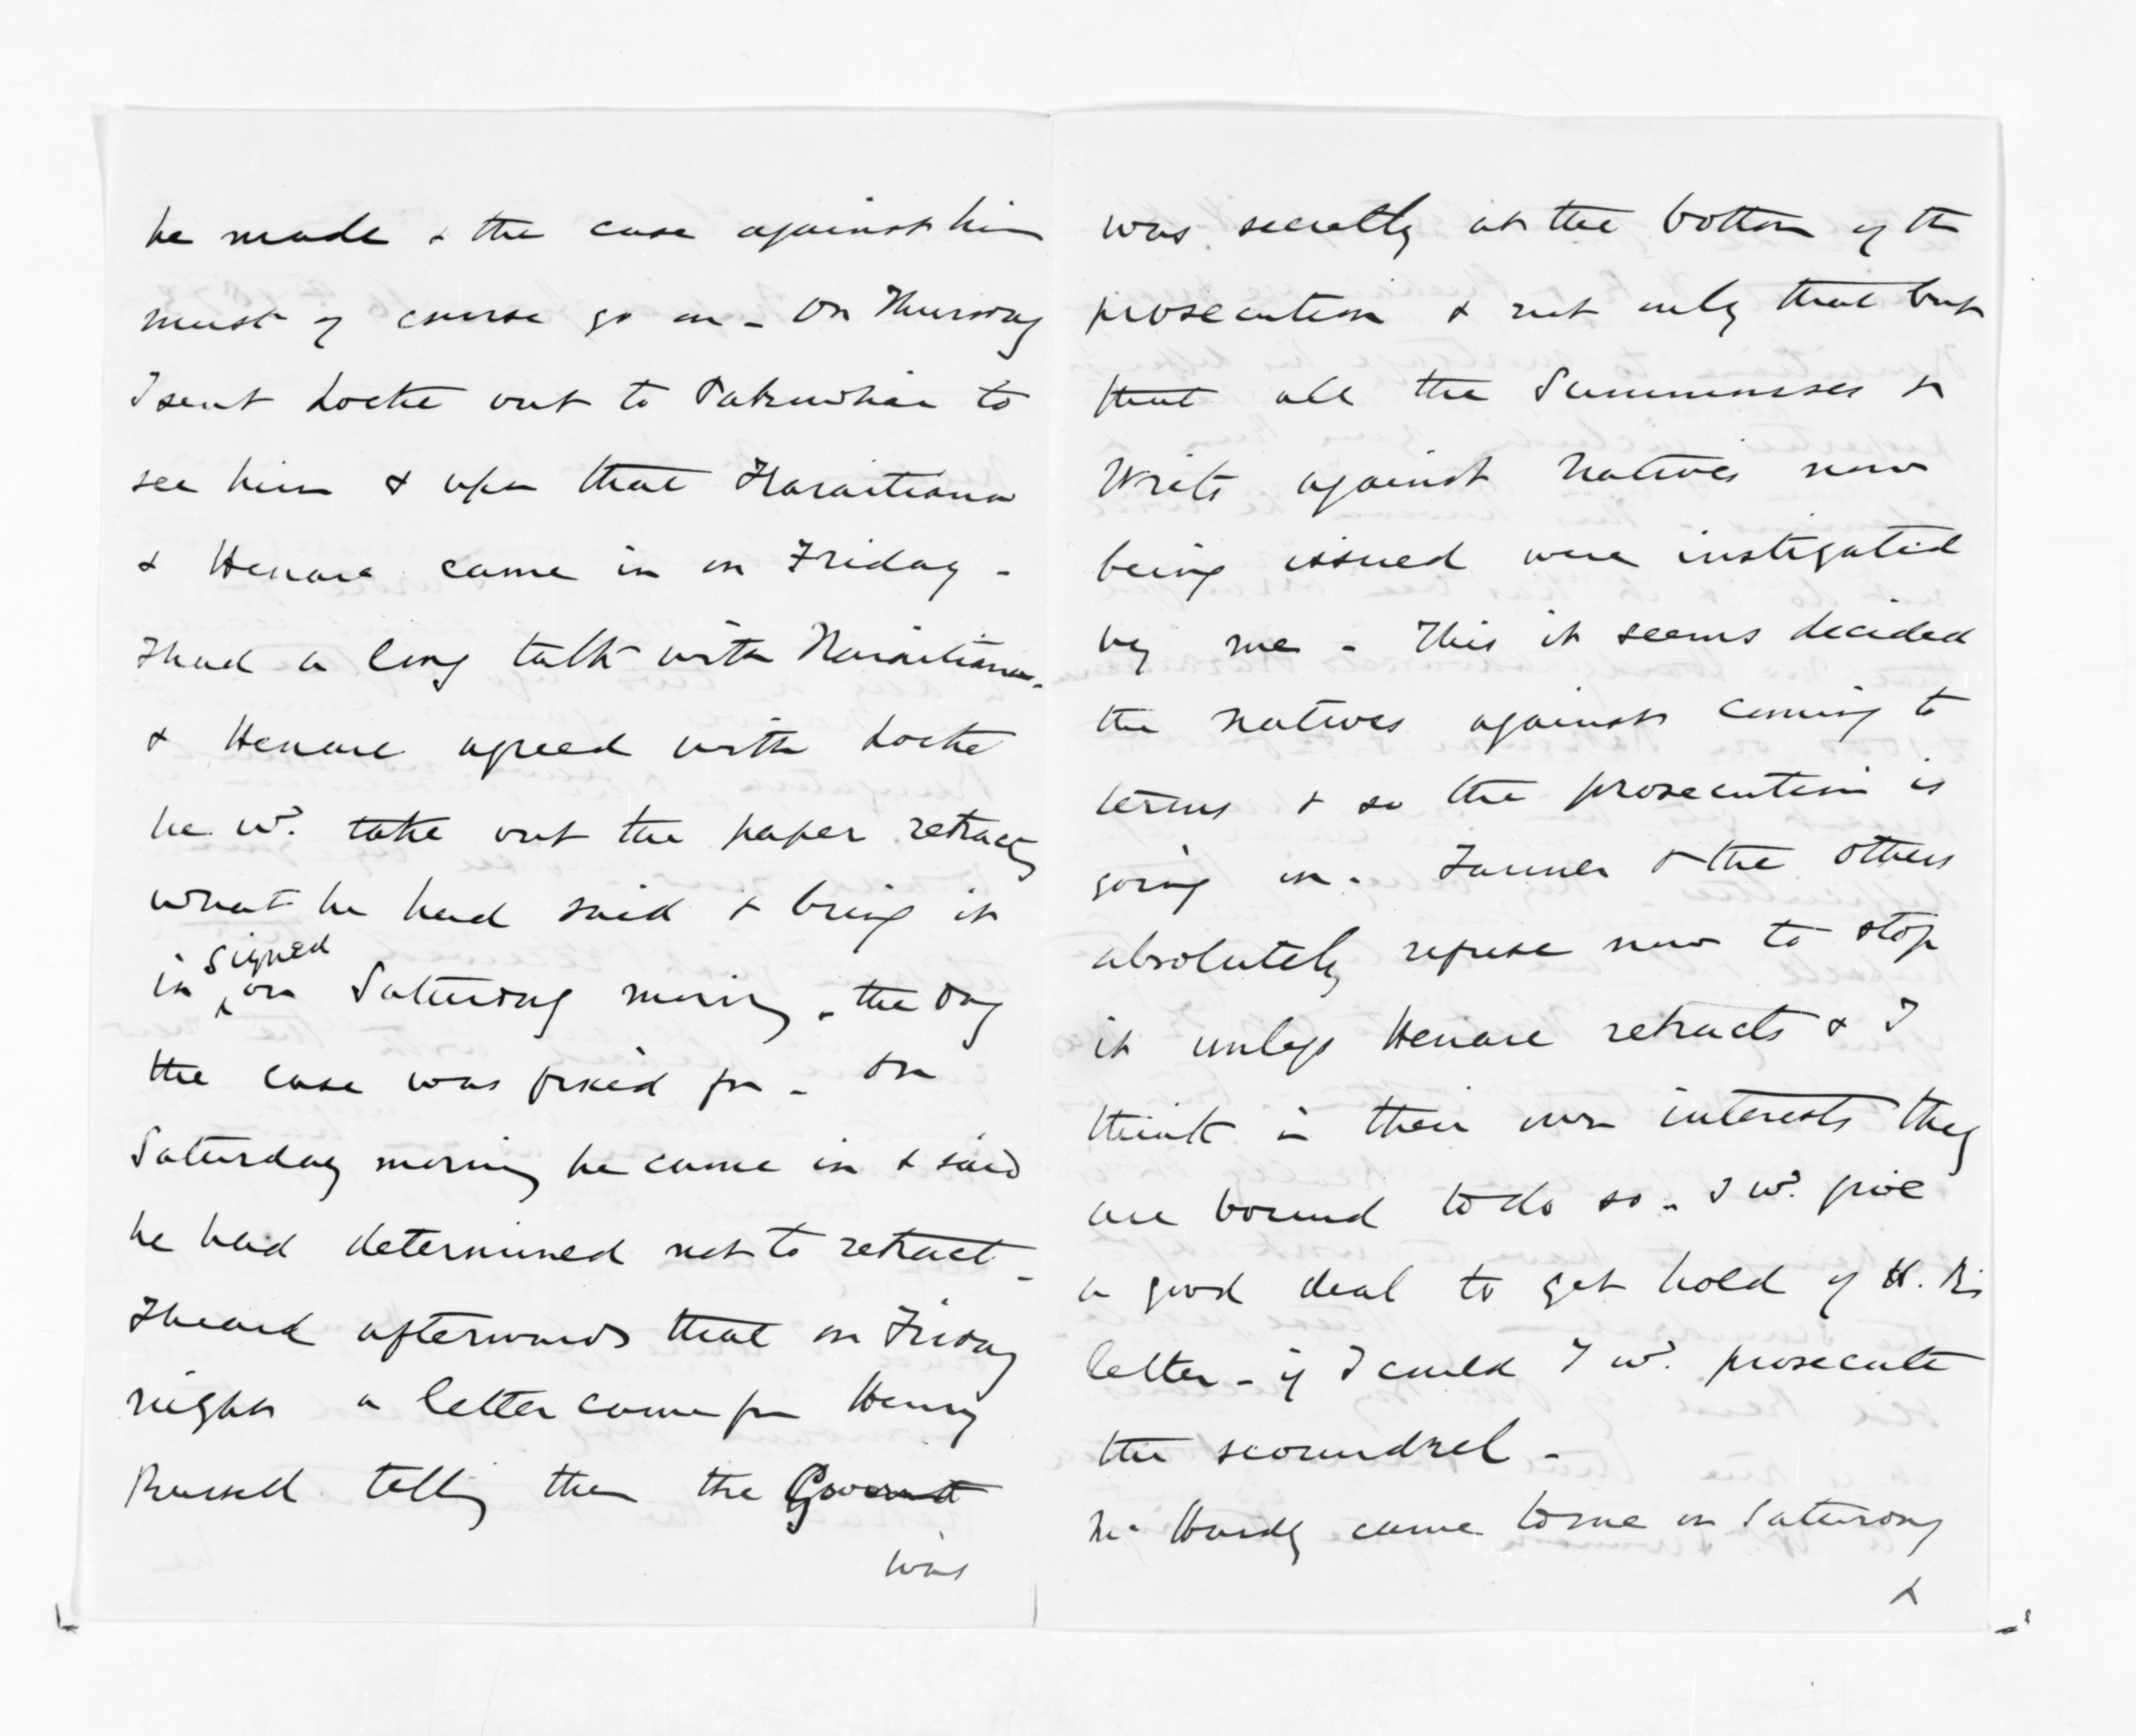 he made & the case against him
must of course go on - On Thursday
I sent Locke out to Pakowhai to
see him & upon that Karaitiana
& Henare came in on Friday -
I had a long talk with Karaitiana -
& Henare agreed with Locke
he wd. take out the paper retractg
what he had said & bring it
in signed on Saturday morning - the day
the case was fixed for - On
Saturday morning he came in & said
he had determined not to retract -
I heard afterwards that on Friday
night a letter came fm Henry
Russell telling them the Governmt
was
was secretly at the bottom of the
prosecution & not only that but
that all the Summonses &
Writs against Natives now
being issued were instigated
by me - This it seems decided
the natives against coming to
terms & so the prosecution is
going on - Tanner & the others
absolutely refuse now to stop
it unless Henare retracts & I
think in their own interests they
are bound to do so - I wd. give
a good deal to get hold of H. R's
letter - if I could I wd. prosecute
the scoundrel -
Mr Hardy came to me on Saturday
&